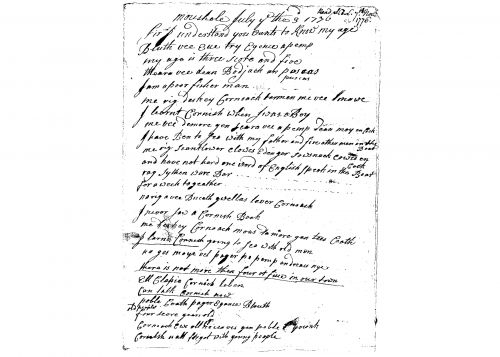 moushole July ye the 3d 1776
Sir I understand you wants to know my age
Bluth vee Eue try Egence a pemp
my age is three Score and five
vee dean Bodjack an poscas
poscas
I am a poor fisher man
me rig deskey Cornoack termen me vee mawe
I learnt Cornish when I was a Boy
me vee demore gen seara vee a pemp Dean moy en
I have Ben to Sea with my father and five other men in the
Boat
me rig Scantlower clowes Eden ger Sowsnack cowes en
Cock
and have not hard one word of English Speak in the Boat
rag Sythen ware Bar
for a week togeather
no riga vee Biscath gwellas lever Cornoack
I never saw a Cornish Book
me deskey Cornoack mous da more gen tees Coath
I larnt Cornish going to Sea with old men
na ges moye vel pager po pemp en dreav nye
there is not more then four or five in our town
Ell Clapia Cornish leben
Can talk Cornish now
poble Coath pager Egance Blouth
old people
four score years old
Cornoack Ewe oll neceaves gen poble younk
Cornish is all forgot with young people